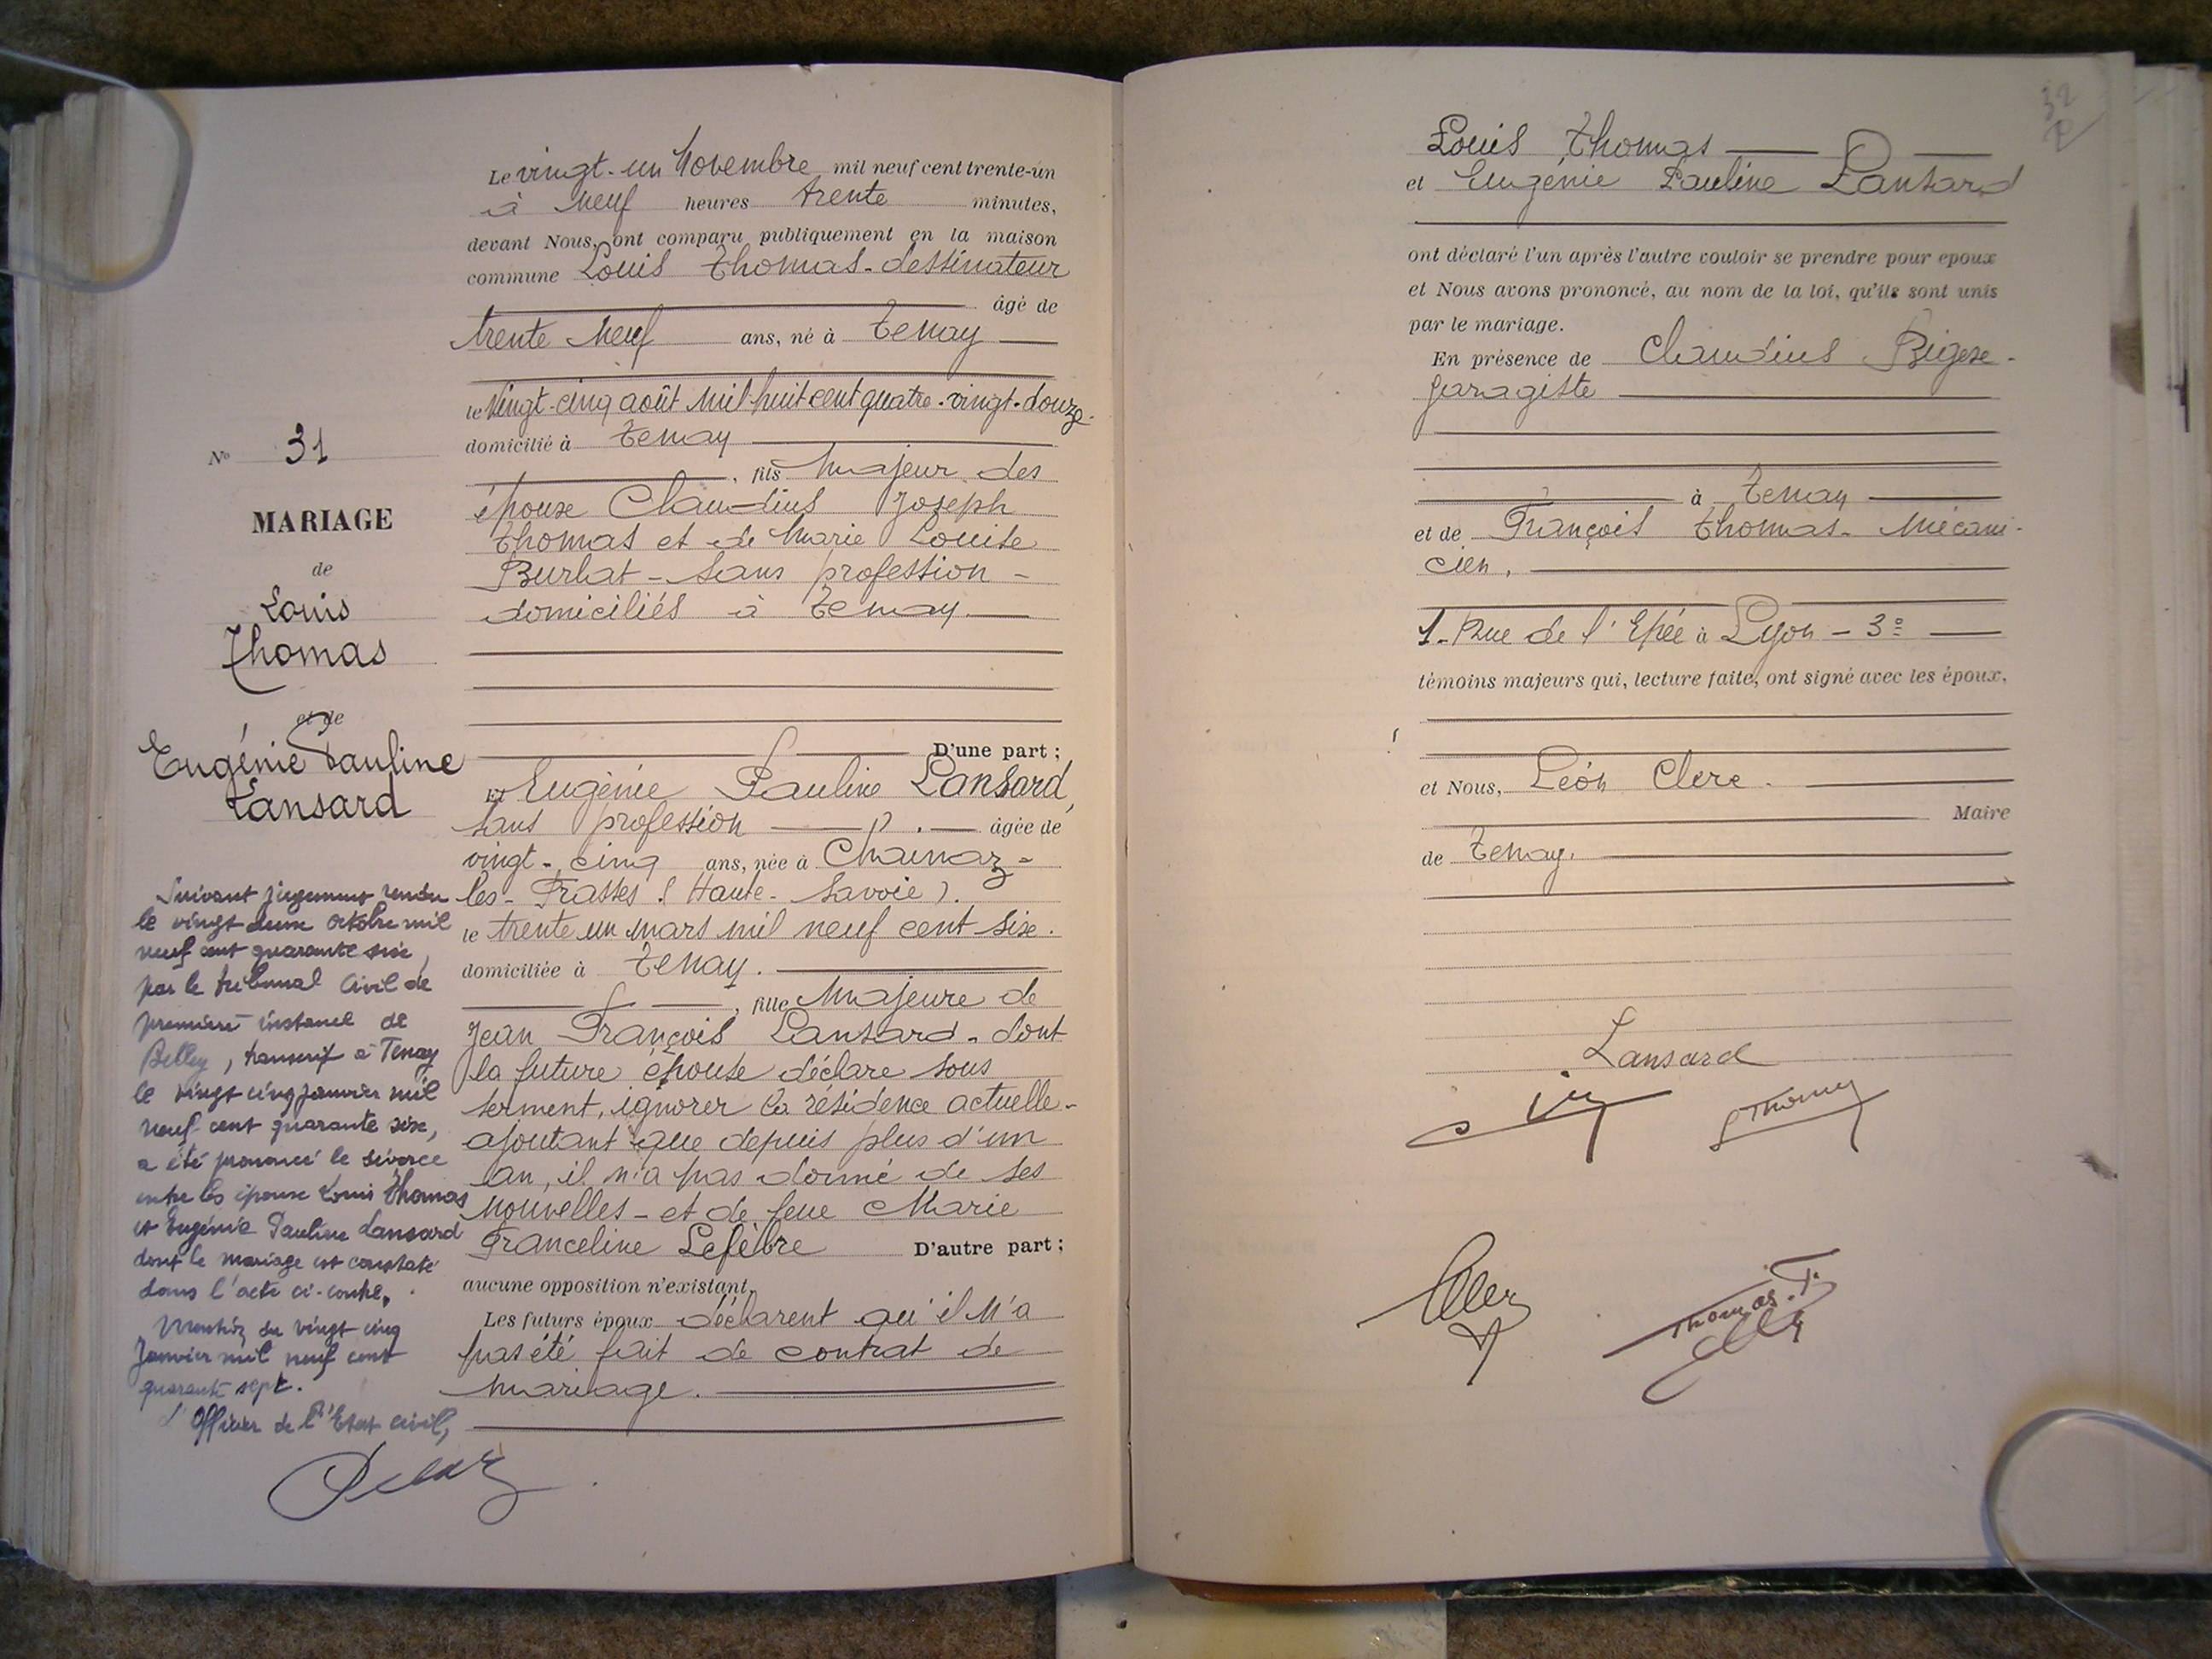 N° 31
MARIAGE
de
Louis
Thomas
et de
Eugénie Pauline
Lansard
Suivant jugement rendu
le vingt deux octobre mil
neuf cent quarante six,
par le tribunal Civil de
première instance de
Belley, transcrit à Tenay
le vingt cinq janvier mil
neuf cent quarante six,
a été prononcé le divorce
entre les époux Louis Thomas
et Eugénie Pauline Lansard
dont le mariage est constaté
dans l'acte ci-contre.
Mention du vingt cinq
Janvier mil neuf cent
quarante sept.
L'Officier de l'Etat civil,
Le vingt-un Novembre mil neuf cent trente-un
à neuf heures trente minutes,
devant Nous, ont comparu publiquement en la maison
commune Louis Thomas-dessinateur
âgé de
trente neuf ans, né à Tenay
le vingt-cinq août mil huit cent quatre-vingt-douze-
domicilié à Tenay
, fils majeur des
époux Claudius Joseph
Thomas et de Marie Louise
Burlat - sans profession -
domiciliés à Tenay.
D'une part ;
Et Eugénie Pauline Lansard,
sans profession âgée de
vingt-cinq ans, née à Chainaz-
les-Frasses (Haute-Savoie).
le trente un mars mil neuf cent six.
domiciliée à Tenay.
, fille majeure de
Jean François Lansard - dont
la future épouse déclare sous
serment, ignorer la résidence actuelle-
ajoutant que depuis plus d'un
an, il n'a pas donné de ses
nouvelles - et de feue Marie
Franceline Lefèbre D'autre part ;
aucune opposition n'existant.
Les futurs époux déclarent qu'il n'a
pas été fait de contrat de
mariage.
32
Louis Thomas
et Eugénie Pauline Lansard
ont déclaré l'un après l'autre vouloir se prendre pour epoux
et Nous avons prononcé, au nom de la loi, qu'ils sont unis
par le mariage.
En présence de Claudius
garagiste
à Tenay
et de François Thomas- Mécani-
cien,
1-Rue de l'Epée à Lyon - 3e
témoins majeurs qui, lecture faite, ont signé avec les époux,
et Nous, Léon Clerc.
Maire
de Tenay.
Lansard
LThomas
Thomas. F